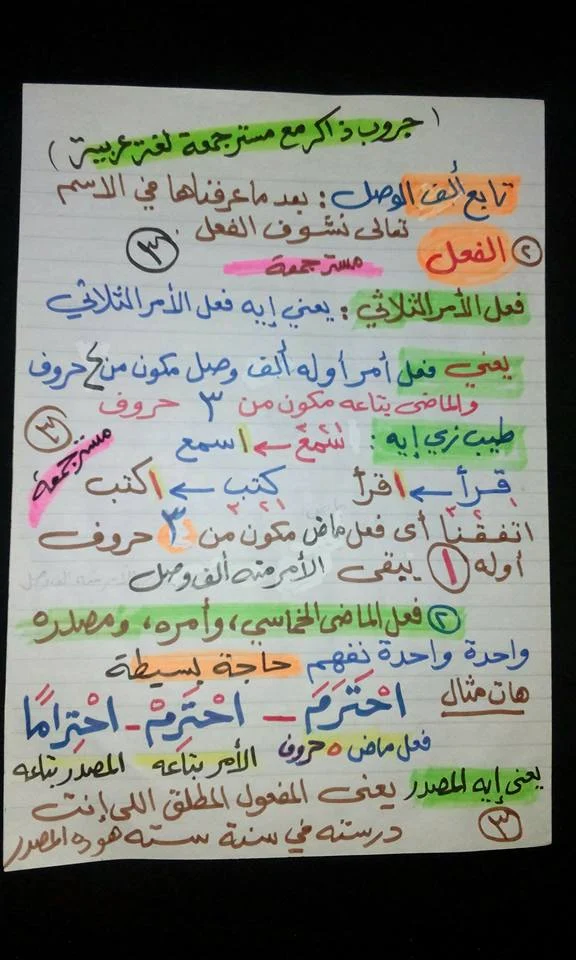 ( جروب ذاكر مع مستر جمعة لغة عربية )
تابع ألف الوصل : بعد ما عرفناها في الاسم
تعالى نشوف الفعل .
② الفعل ٣
مستر جمعة
فعل الأمر الثلاثي : يعني إيه فعل الأمر الثلاثي
يعني فعل أمر أوله ألف وصل مكون من ٤ حروف
والماضى بتاعه مكون من ٣ حروف
طيب زي إيه : سَمِعَ ← اسمع ٣
مستر جمعة
قرأ ← اقرأ كتب ← اكتب
١ ٢ ٣ ١ ٢ ٣
اتفقنا أى فعل ماض مكون من ٣ حروف
أوله ١ يبقى الأمر منه ألف وصل
② فعل الماضى الخماسي ، وأمره ، ومصدره
واحدة واحدة نفهم حاجة بسيطة
هات مثال احْتَرَمَ – احْتَرِمْ – احْتِرامًا
فعل ماض ٥ حروف الأمر بتاعه المصدر بتاعه
يعنى إيه المصدر يعنى المفعول المطلق اللى إنت
درسته في سنة ستة هو ده المصدر ٣